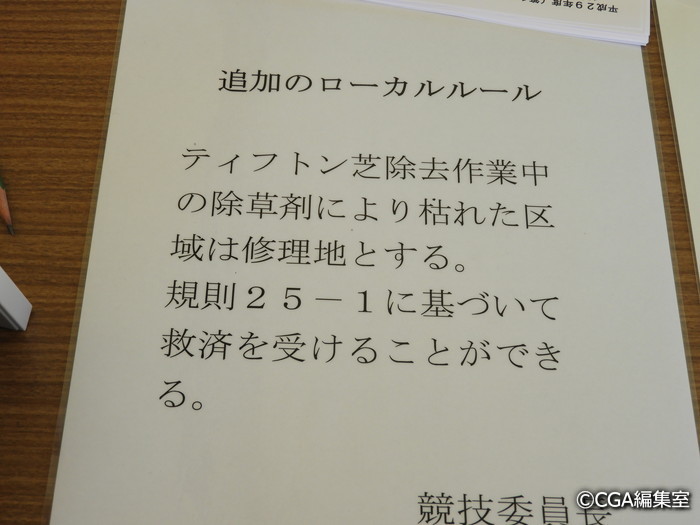 平成２９年度（第
追加のローカルルール
ティフトン芝除去作業中
の除草剤により枯れた区
域は修理地とする。
規則２５－１に基づいて
救済を受けることができ
る。
競技委員長
©CGA編集室